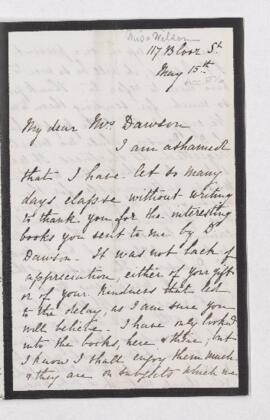 Miss Wilson
117 Bloor St
May 15th
My dear Mrs Dawson
I am ashamed
that I have let so many
days elapse without writing
to thank you for the interesting
books you sent to me by Dr
Dawson. It was not lack of
appreciation, either of your gift
or of your kindness that led
to the delay, as I am sure you
will believe. I have only looked
into the books, here & there, but
I know I shall enjoy them much
& they are on subjects which we